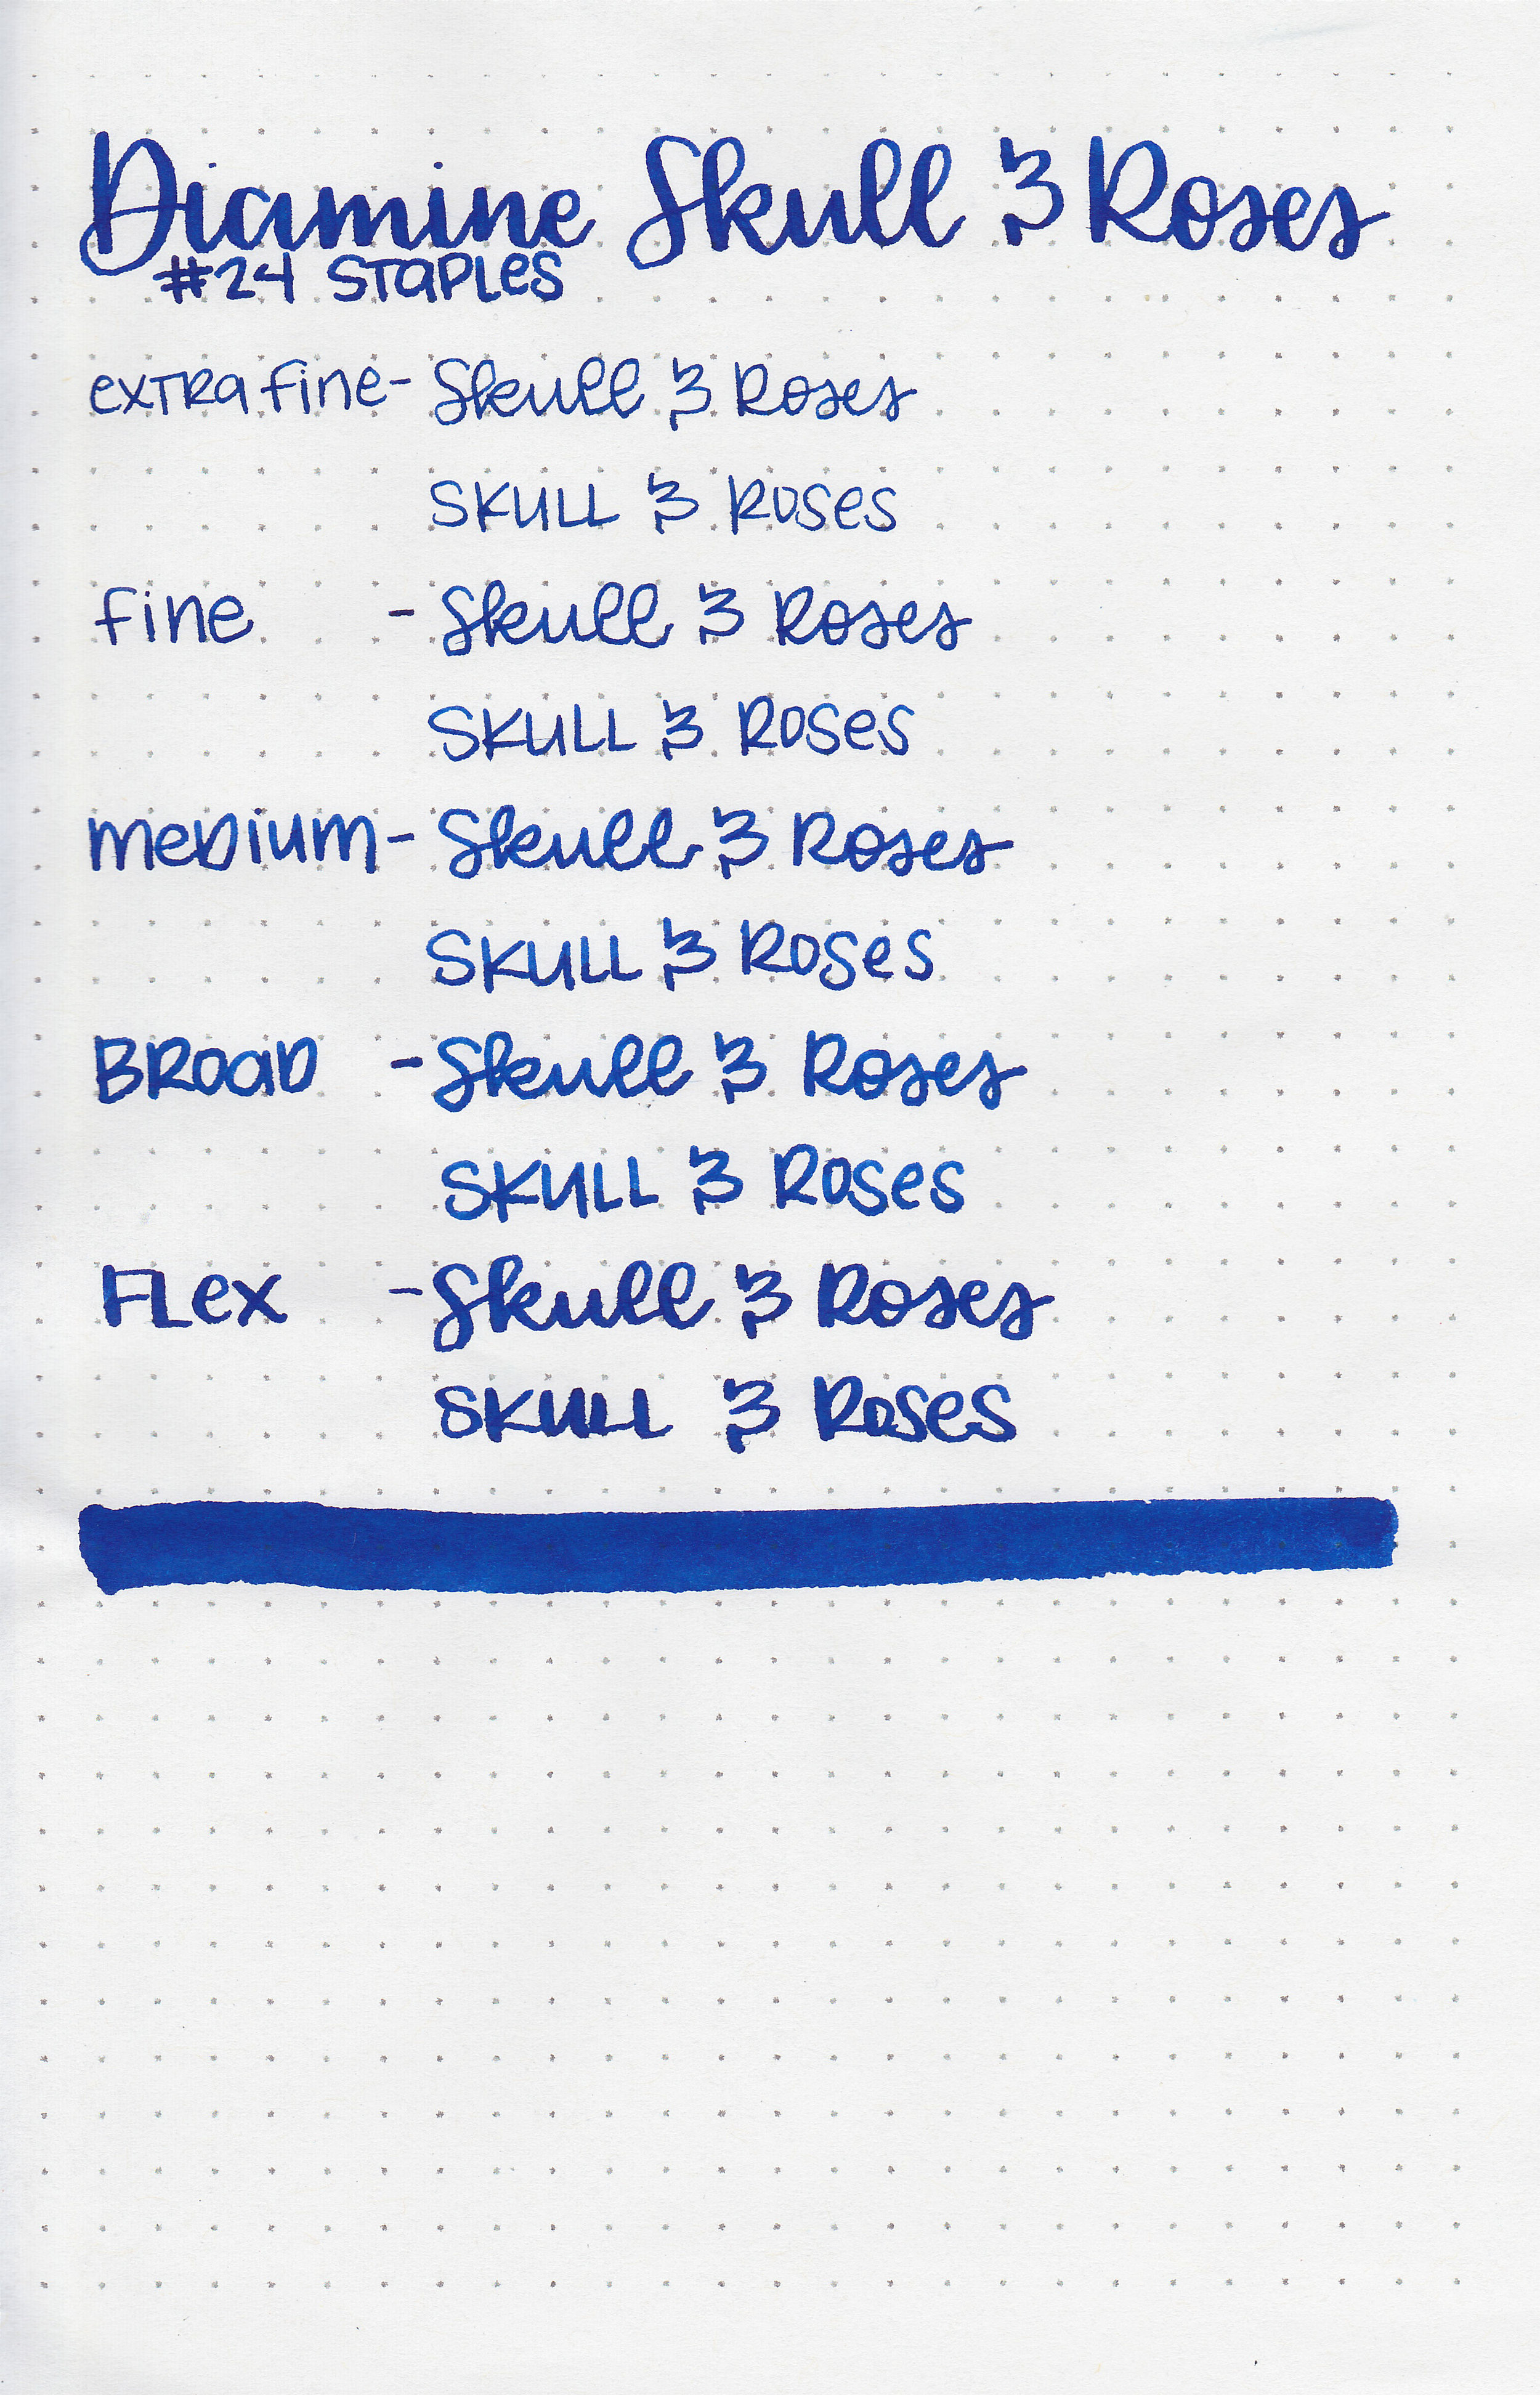 Diamine Skull & Roses
#24 STaPLes
exTRa fine - Skull & Roses
SKULL & Roses
fine - Skull & Roses
SKULL & Roses
meDium - Skull & Roses
SKULL & Roses
BRoaD - Skull & Roses
SKULL & Roses
FLex - Skull & Roses
SKULL & Roses